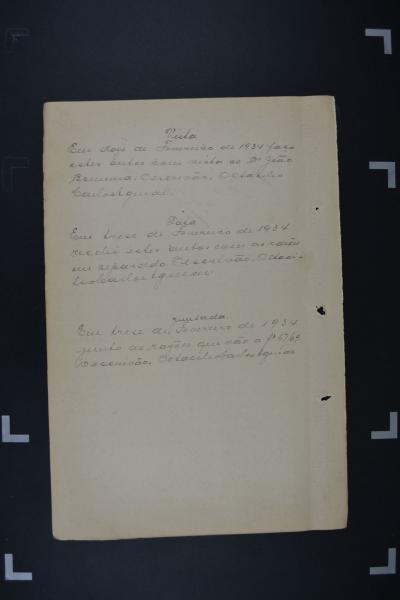 Vista
Em dois de Fevereiro de 1934 faço
estes autos com vista ao Dr João
Escrivão, Octacilio
Carlos
Data
Em treze de Fevereiro de 1934
recebi estes autos com as razões
em separado O Escrivão, Octaci-
lio Carlos
Juntada
Em treze de Fevereiro de 1934
junto as razões que vão a f
O Escrivão, Octacilio Carlos